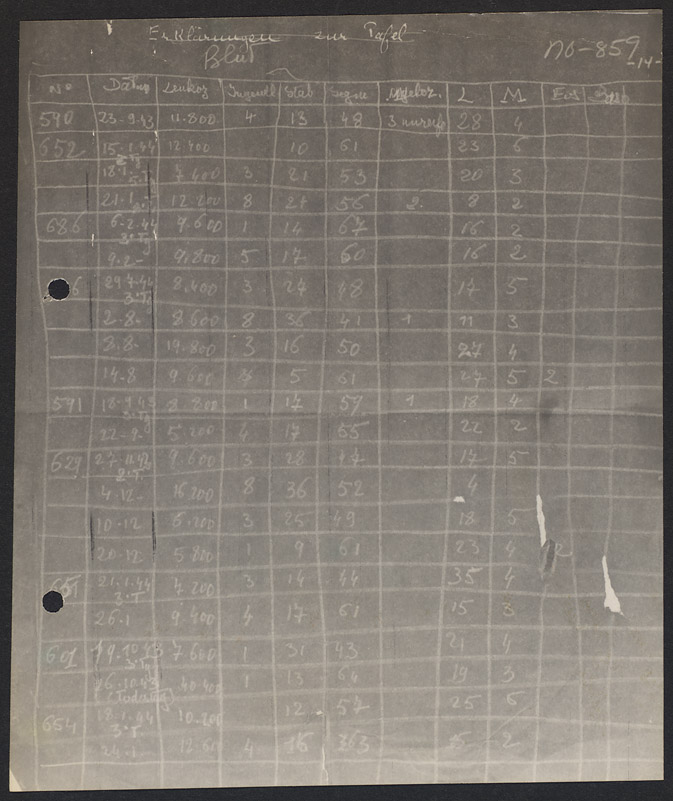 Erklärungen zur Tafel
Blut
NO-859
-14-
No Datum Leukoz Jugendl Stab Segm L M Eos
590 23-9-43 11.800 4 13 48 3 28 4
652 15-1-44 12.400 10 61 23 6
18-1- 7.400 3 21 53 20 3
21-1 12.200 8 21 56 2 8 2
686 6-2-44 9.600 1 14 67 16 2
9-2- 9.800 5 17 60 16 2
29-7-44 8.400 3 27 48 17 5
3.T
2-8- 8.600 8 36 41 1 11 3
8.8- 19.800 3 16 50 27 4
14-8 9.600 5 61 27 5 2
591 18-9-43 8.800 1 17 59 1 18 4
22-9- 5.200 4 17 55 22 2
629 27-11-43 9.600 3 28 47 17 5
4-12- 16.200 8 36 52 4
10-12 6.200 3 25 49 18 5
20-12 5.800 1 9 61 23 4 2
651 21-1-44 7.200 3 14 44 35 4
3.T
26-1 9.400 4 17 61 15 3
601 19-10-43 7.600 1 31 43 21 4
26-10-43 40.400 1 13 64 19 3
654 18-1-44 10.200 12 57 25 6
3.T.
24-1 12.60 4 16 363 15 2